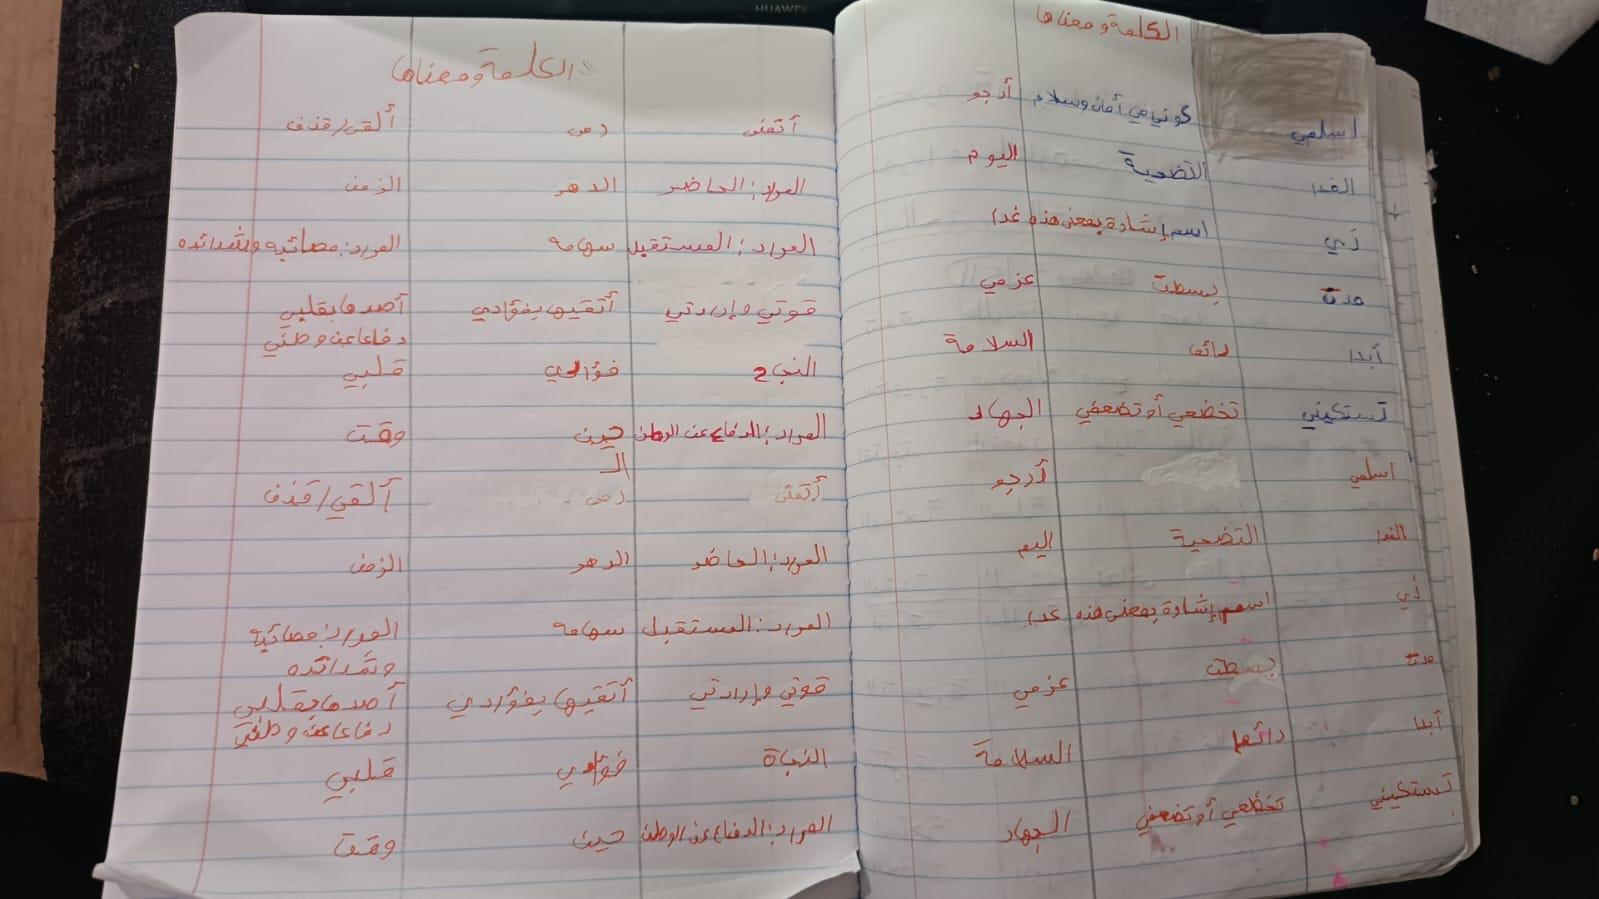 HUAWEI
الكلمة ومعناها
اسلمي كوني في أمان وسلام أرجو
الفدا التضحية اليوم
ذي اسم إشارة بمعنى هذه غدا
مدت بسطت عزمي
أبدا دائما السلامة
تستكيني تخضعي أو تضعفي الجهاد
اسلمي أرجو
الفدا التضحية اليوم
ذي اسم إشارة بمعنى هذه غدا
مدت بسطت عزمي
أبدا دائما السلامة
تستكيني تخظعي أو تضعفي الجهاد
الكلمة ومعناها
أتمنى رمى ألقى/قذف
المراد: الحاضر الدهر الزمن
المراد: المستقبل سهامه المراد: مصائبه وشدائده
قوتي وإرادتي أتقيها بفؤادي أصدها بقلبي
دفاعا عن وطني
النجاح فؤادي قلبي
المراد: الدفاع عن الوطن حين وقت
الـ
أتمنى رمى ألقي/قذف
المراد: الحاضر الدهر الزمن
المراد: المستقبل سهامه المراد: مصائبه
وشدائده
قوتي وإرادتي أتقيها بفؤادي أصدها بقلبي
دفاعا عن وطني
النجاة فؤادي قلبي
المراد: الدفاع عن الوطن حين وقت